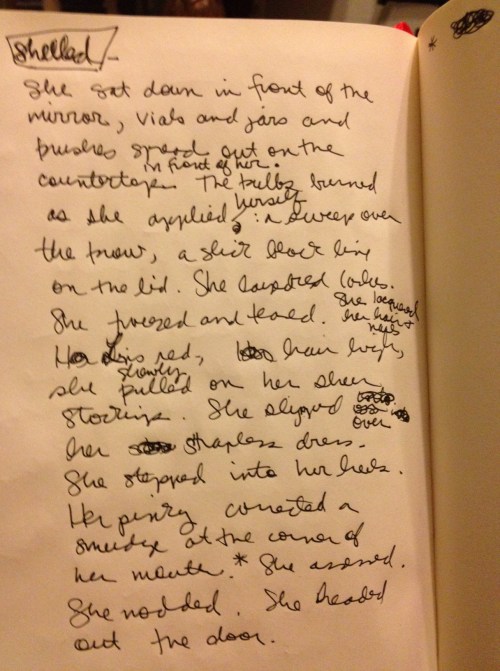 Shellad -
She sat down in front of the
mirror, vials and jars and
brushes spread out on the
in front of her.
countertop. The bulbs burned
herself
as she applied : a sweep over
the brow, a slick black line
on the lid. She layered lashes.
She lacquered
She tweezed and teased. her hair +
nails
Her lips red, hair high,
slowly
she pulled on her sheer
stockings. She slipped
over
her strapless dress.
She stepped into her heels.
Her pinky corrected a
smudge at the corner of
her mouth. * She assessed.
She nodded. She headed
out the door.
*